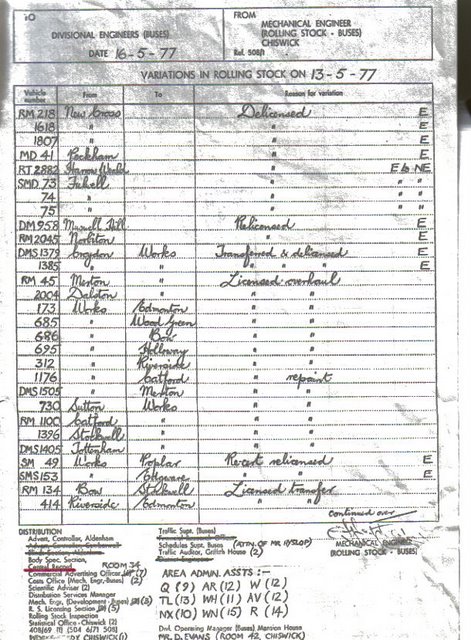 TO
DIVISIONAL ENGINEERS (BUSES)
DATE 16-5-77
FROM
MECHANICAL ENGINEER
(ROLLING STOCK - BUSES)
CHISWICK
Ref. 508/1
VARIATIONS IN ROLLING STOCK ON 13-5-77
Vehicle number From To Reason for variation
RM 218 New Cross Delicensed E
1618 " " E
1807 " " E
MD 41 Peckham " E
RT 2882 Harrow Weald " E to NE
SMD 73 Fulwell " " "
74 " " " "
75 " " " "
DM 958 Muswell Hill Relicensed E
RM 2045 Norbiton " E
DMS 1379 Croydon Works Transferred & delicensed E
1385 " " " " E
RM 45 Merton " Licensed overhaul
2004 Dalston " " "
173 Works Edmonton " "
685 " Wood Green " "
686 " Bow " "
695 " Holloway " "
312 " Riverside " "
1176 " Catford " repaint
DMS 1505 " Merton " "
730 Sutton Works " "
RM 1100 Catford " " "
1396 Stockwell " " "
DMS 1405 Tottenham " " "
SM 49 Works Poplar Recert relicensed E
SMS 153 " Edgware " " E
RM 134 Bow Stockwell Licensed transfer
414 Riverside Edmonton " "
continued over
MECHANICAL ENGINEER
(ROLLING STOCK - BUSES)
DISTRIBUTION
Advert. Controller, Aldenham
Body Spec. Section,
Central Record ROOM 34
Commercial Advertising Officer (7)
Costs Office (Mech. Engr.-Buses) (2)
Scientific Adviser (2)
Distribution Services Manager
Mech. Engr. (Development - Buses) (3)
R. S. Licensing Section (5)
Rolling Stock Inspection
Statistical Office - Chiswick (4)
Traffic Supt. (Buses)
Schedules Supt. (Buses) (ATTN. OF MR HYSLOP)
Traffic Auditor, Griffith House (2)
AREA ADMIN. ASSTS :-
Q (9) AR (12) W (12)
TL (13) WH (11) AV (12)
NX (10) WN (15) R (14)
Dvl. Operating Manager (Buses) Mansion House
MR. D. EVANS (ROOM 42, CHISWICK)